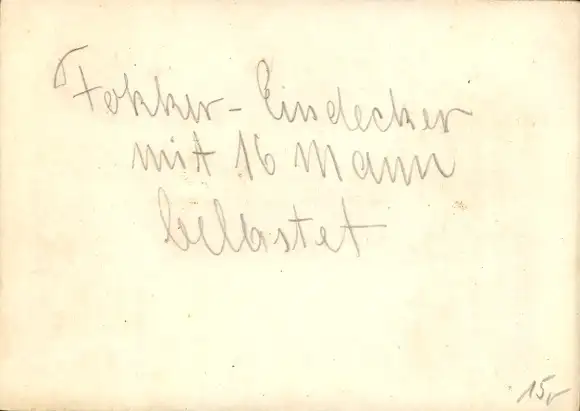 Fokker - Eindecker
mit 16 Mann
bellastet
15,-